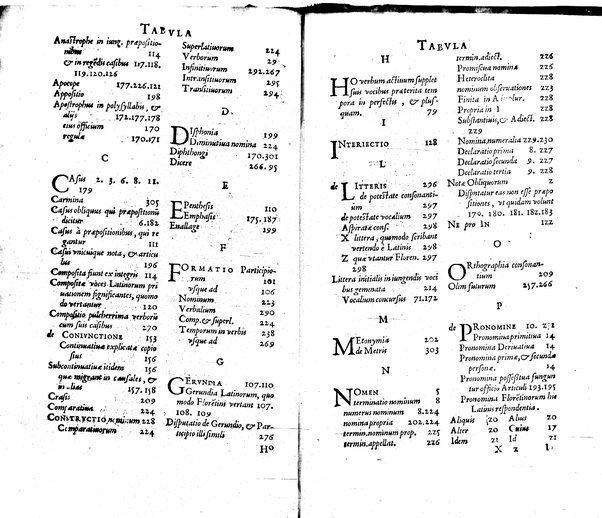 TABVLA
Anastrophe in iung. præpositio-
nibus 114
& in regēdis casibus 117.118.
119.120.126
Apocope 177.226.121
Appositio 198
Apostrophus in polysyllabis, &
alijs 172.177.178
eius officium 170
regula 170.171
C
CASVS 2. 3. 6. 8. 11.
179
Carmina 305
Casus obliquus qui præpositionū
dicitur 6.182
Casus à præpositionibus, qui re
gantur 111
Casus vnicuique nota, & articu
lus 196
Composita fiunt ex integris 114
Compositæ voces Latinorum pri
uationem significantes, quomo
do vertantur 120
Compositio pulcherrima verborū
cum suis casibus 270
de CONIVNCTIONE 153
Continuatiuæ explicatæ copio
sius 156
Subcontinuatiuæ iidem 156
quæ migrent in causales, &
in-las 157.158
Crasis 153
Comparatiua 224
CONSTRVCTIO nominum 228
Comparatiuorum 224
Superlatiuorum 224
Verborum 29
Infinitiuorum 292.267
Intransitiuorum 295
Transitiuorum 294
D
Disphonia 199
Diminutiua nomina 224
Diphthongi 170.301
Dicere 266.95
E
Epenthesis 110
Emphasis 175.187
Enallage 199
F
FORMATIO Participio-
rum 101
vsque ad 106
Nominum 223
Verbalium 290
Comp. & superl. 224
Temporum in verbis 238
vsque ad 269
G
GERVNDIA 107.110
Gerundia Latinorum, quo
modo Florētini vertant 107.
108. 109
Disputatio de Gerundio, & Par-
ticipio illi simili 276
Ho
TABVLA
H
HO verbum actiuum supplet
suis vocibus præterita tem
pora in perfectis, & plus-
quam. 79
I
INTERIECTIO 128
L
de LITTERIS 296
de potestate consonanti-
um 297
de potestate vocalium 297
Aspiratæ cons. 298
X littera, quomodo scribant
vertendo è Latinis 298
Z quæ vtantur Floren. 297
298
Littera initialis in iungendis voci
bus geminata 214
Vocalium concursus 71.172
M
Metonymia 202
de Metris 303
N
NOMEN 5
terminatio nominum 8
numerus nominum 8.224
nomina propria 202.224
termin. nominum prop. 225
termin. appellat. 226
termin. adiect. 226
Promiscua nomina 228
Heteroclita 228
nominum obseruationes 223
Propria in I 228
Substantiuis, & Adiect.
229
Nomina numeralia 229.230
Declaratio prima 8. 227
Declaratio secunda 9. 227
Declaratio tertia 9. 228
Notæ Obliquorum 2
Disputatur eas non esse præpo
sitiones, vt quidam volunt
179. 180. 181. 182. 183
NE pro IN 122
O
Orthographia consonan-
tium 209
Olim futurum 257.266
P
de PRONOMINE 10.
Pronomina primitiua 14
Pronomina Deriuatiua 14
Pronomina primæ, & secundæ
personæ. 14
Pronomina possessiua fungun
tur officio Articuli 193.195
Pronomina Florētinorum his
Latinis respondentia.
Aliquis 20 Alius 20
Alter 20 Cuius 17
Idem 21 Id 21
X 2